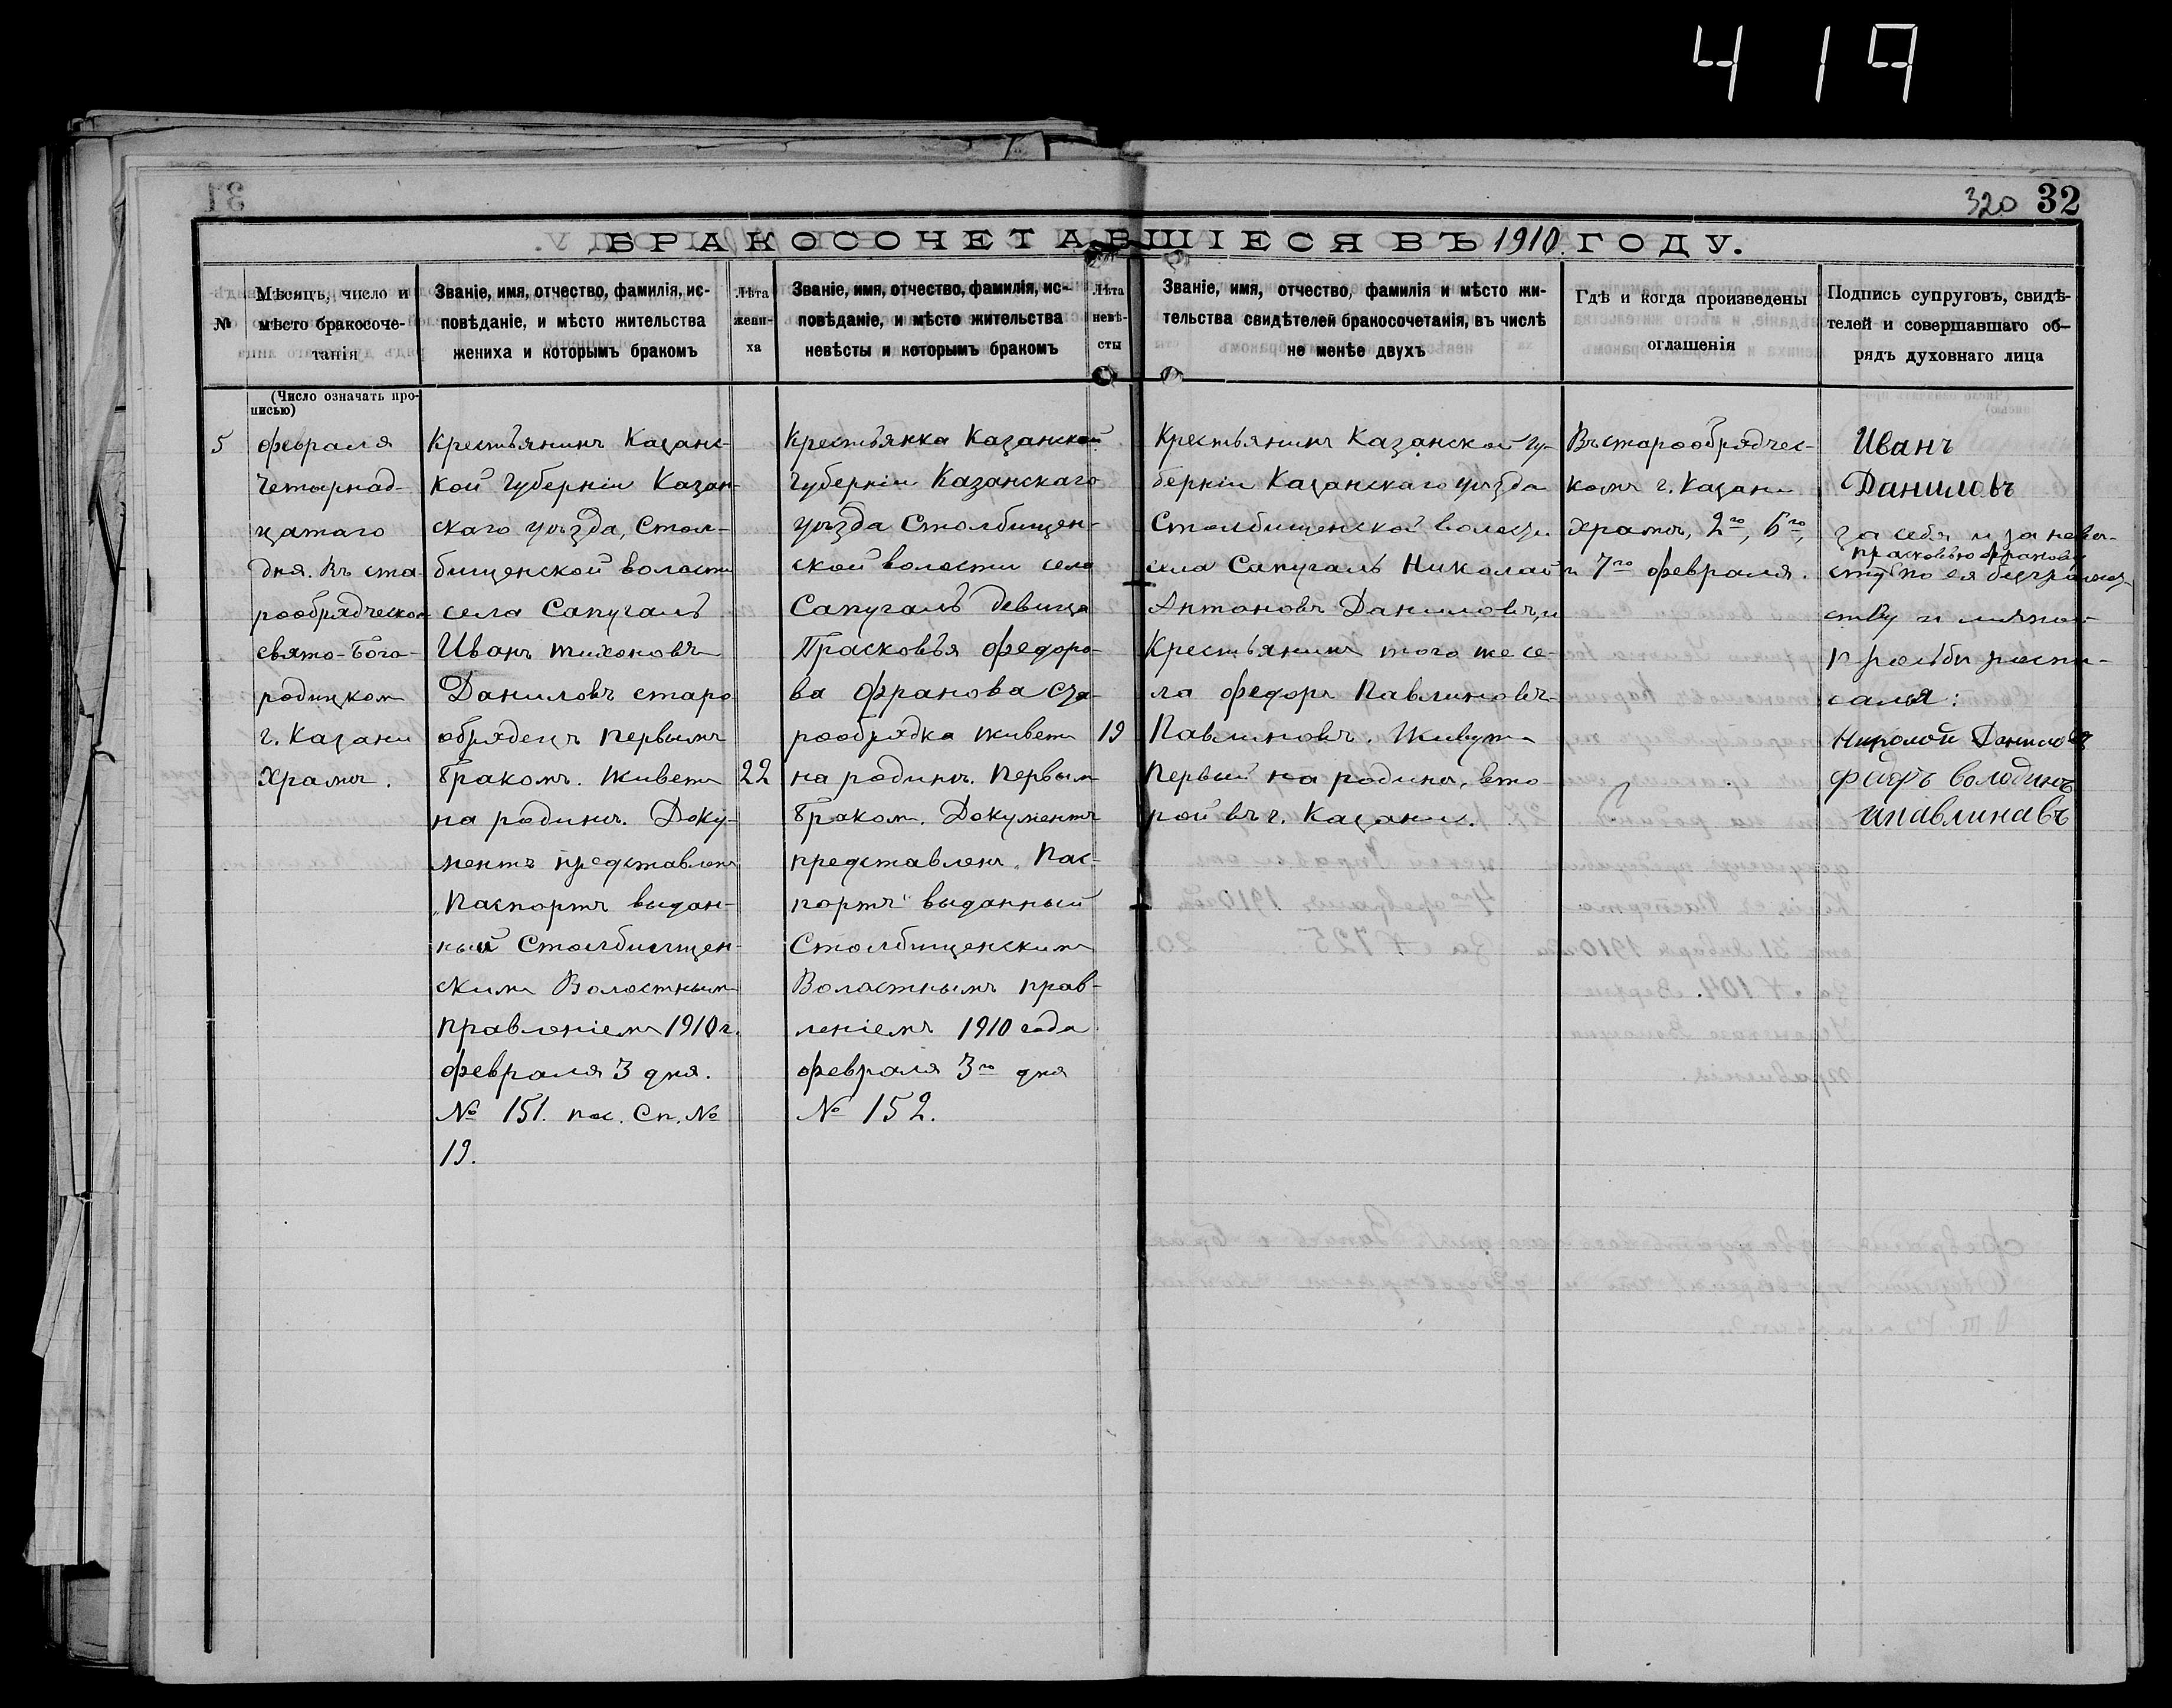 419
320 32
БРАКОСОЧЕТАВШІЕСЯ ВЪ 1910 ГОДУ.
№
Мѣсяцъ, число и
мѣсто бракосоче-
танія
Званіе, имя, отчество, фамилія, ис-
повѣданіе, и мѣсто жительства
жениха и которымъ бракомъ
Лѣта
жени-
ха
Званіе, имя, отчество, фамилія, ис-
повѣданіе, и мѣсто жительства
невѣсты и которымъ бракомъ
Лѣта
невѣ-
сты
Званіе, имя, отчество, фамилія и мѣсто жи-
тельства свидѣтелей бракосочетанія, въ числѣ
не менѣе двухъ
Гдѣ и когда произведены
оглашенія
Подпись супруговъ, свидѣ-
телей и совершавшаго об-
рядъ духовнаго лица
(Число означать про-
писью)
5
февраля
Четырнад-
цатаго
дня. Въ ста-
рообрядческом
свято-Бого-
родицком
г. Казани
Храмѣ.
Крестьянинъ Казанс-
кой Губерніи Казан-
скаго уѣзда, Стол-
бищенской волости
села Сапугалъ
Иванъ Тихоновъ
Даниловъ старо
обрядецъ Первымъ
Бракомъ. Живетъ
на родинѣ. Доку-
ментъ представленъ
„Паспортъ выдан-
ный Столбищен-
скимъ Волостнымъ
Правленіемъ 1910 г.
февраля 3 дня.
№ 151. пос. Сп. №
19.
22
Крестьянка Казанской
Губерніи Казанскаго
уѣзда Столбищен-
ской волости села
Сапугалъ девица
Прасковья Федоро-
ва Франова ста-
рообрядка живетъ
на родинѣ. Первым
Браком. Документъ
представленъ „Пас-
портъ" выданный
Столбищенскимъ
Волостнымъ прав-
леніемъ 1910 года
февраля 3го дня
№ 152.
19
Крестьянинъ Казанской гу-
берніи Казанскаго уѣзда
Столбищенской волости
села Сапугалъ Николай
Антоновъ Даниловъ, и
Крестьянинъ того же се-
ла Федоръ Павлиновъ
Павлиновъ. Живутъ
Первый на родинѣ, вто-
рой въ г. Казани.
Въ старообрядчес-
комъ г. Казани
Храмѣ, 2го, 6го,
и 7го февраля.
Иванъ
Даниловъ
за себя и за невѣ-
Прасковью Франову
сту по ея безграмот-
ству и личной
прозьби роспи-
сался:
Николай Данилов
Федръ володинъ
ипавлинавъ